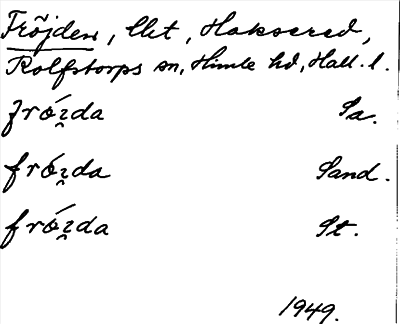 Fröjden, llet, Haksered,
Rolfstorps sn, Himle hd, Hall. l.
frö́ʐda Sa.
frö́ʐda Sand.
frö́ʐda St.
1949.